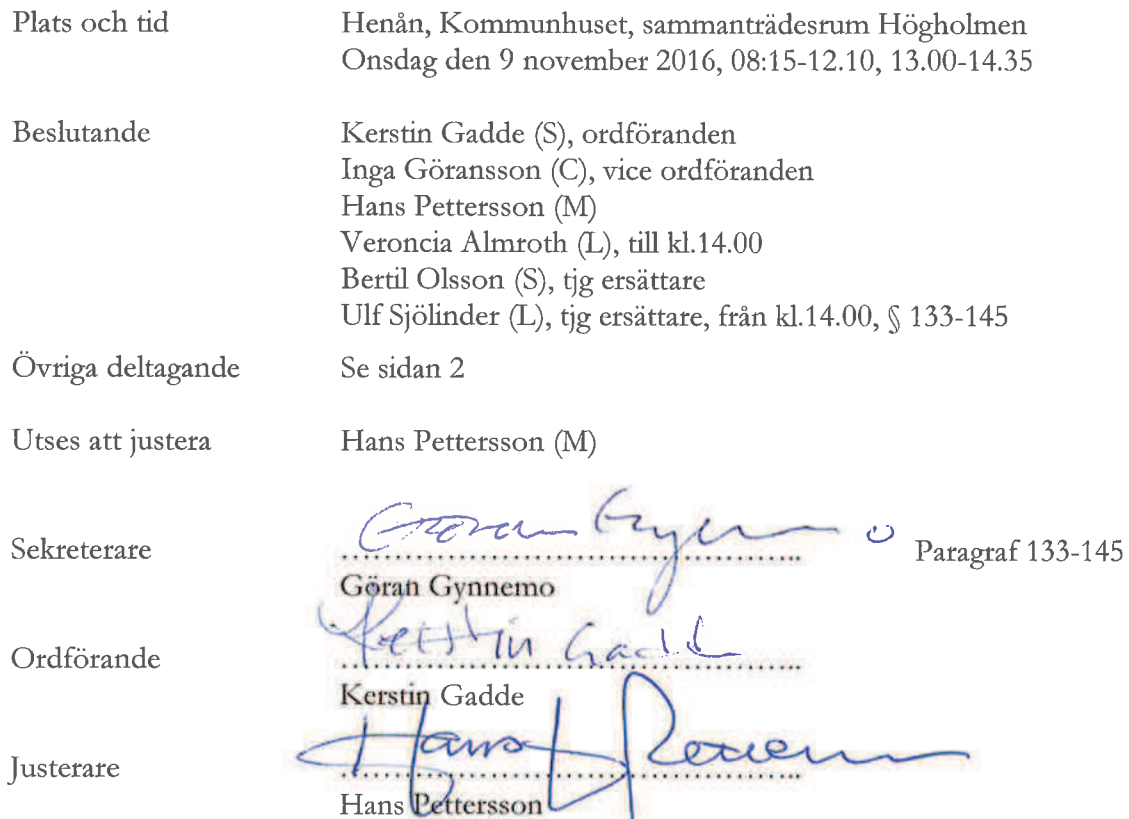 Plats och tid Henån, Kommunhuset, sammanträdesrum Högholmen
Onsdag den 9 november 2016, 08:15-12.10, 13.00-14.35
Beslutande Kerstin Gadde (S), ordföranden
Inga Göransson (C), vice ordföranden
Hans Pettersson (M)
Veroncia Almroth (L), till kl.14.00
Bertil Olsson (S), tjg ersättare
Ulf Sjölinder (L), tjg ersättare, från kl.14.00, § 133-145
Övriga deltagande Se sidan 2
Utses att justera Hans Pettersson (M)
Sekreterare Paragraf 133-145
Göran Gynnemo
Ordförande Kerstin Gadde
Kerstin Gadde
Justerare Hans
Hans Pettersson